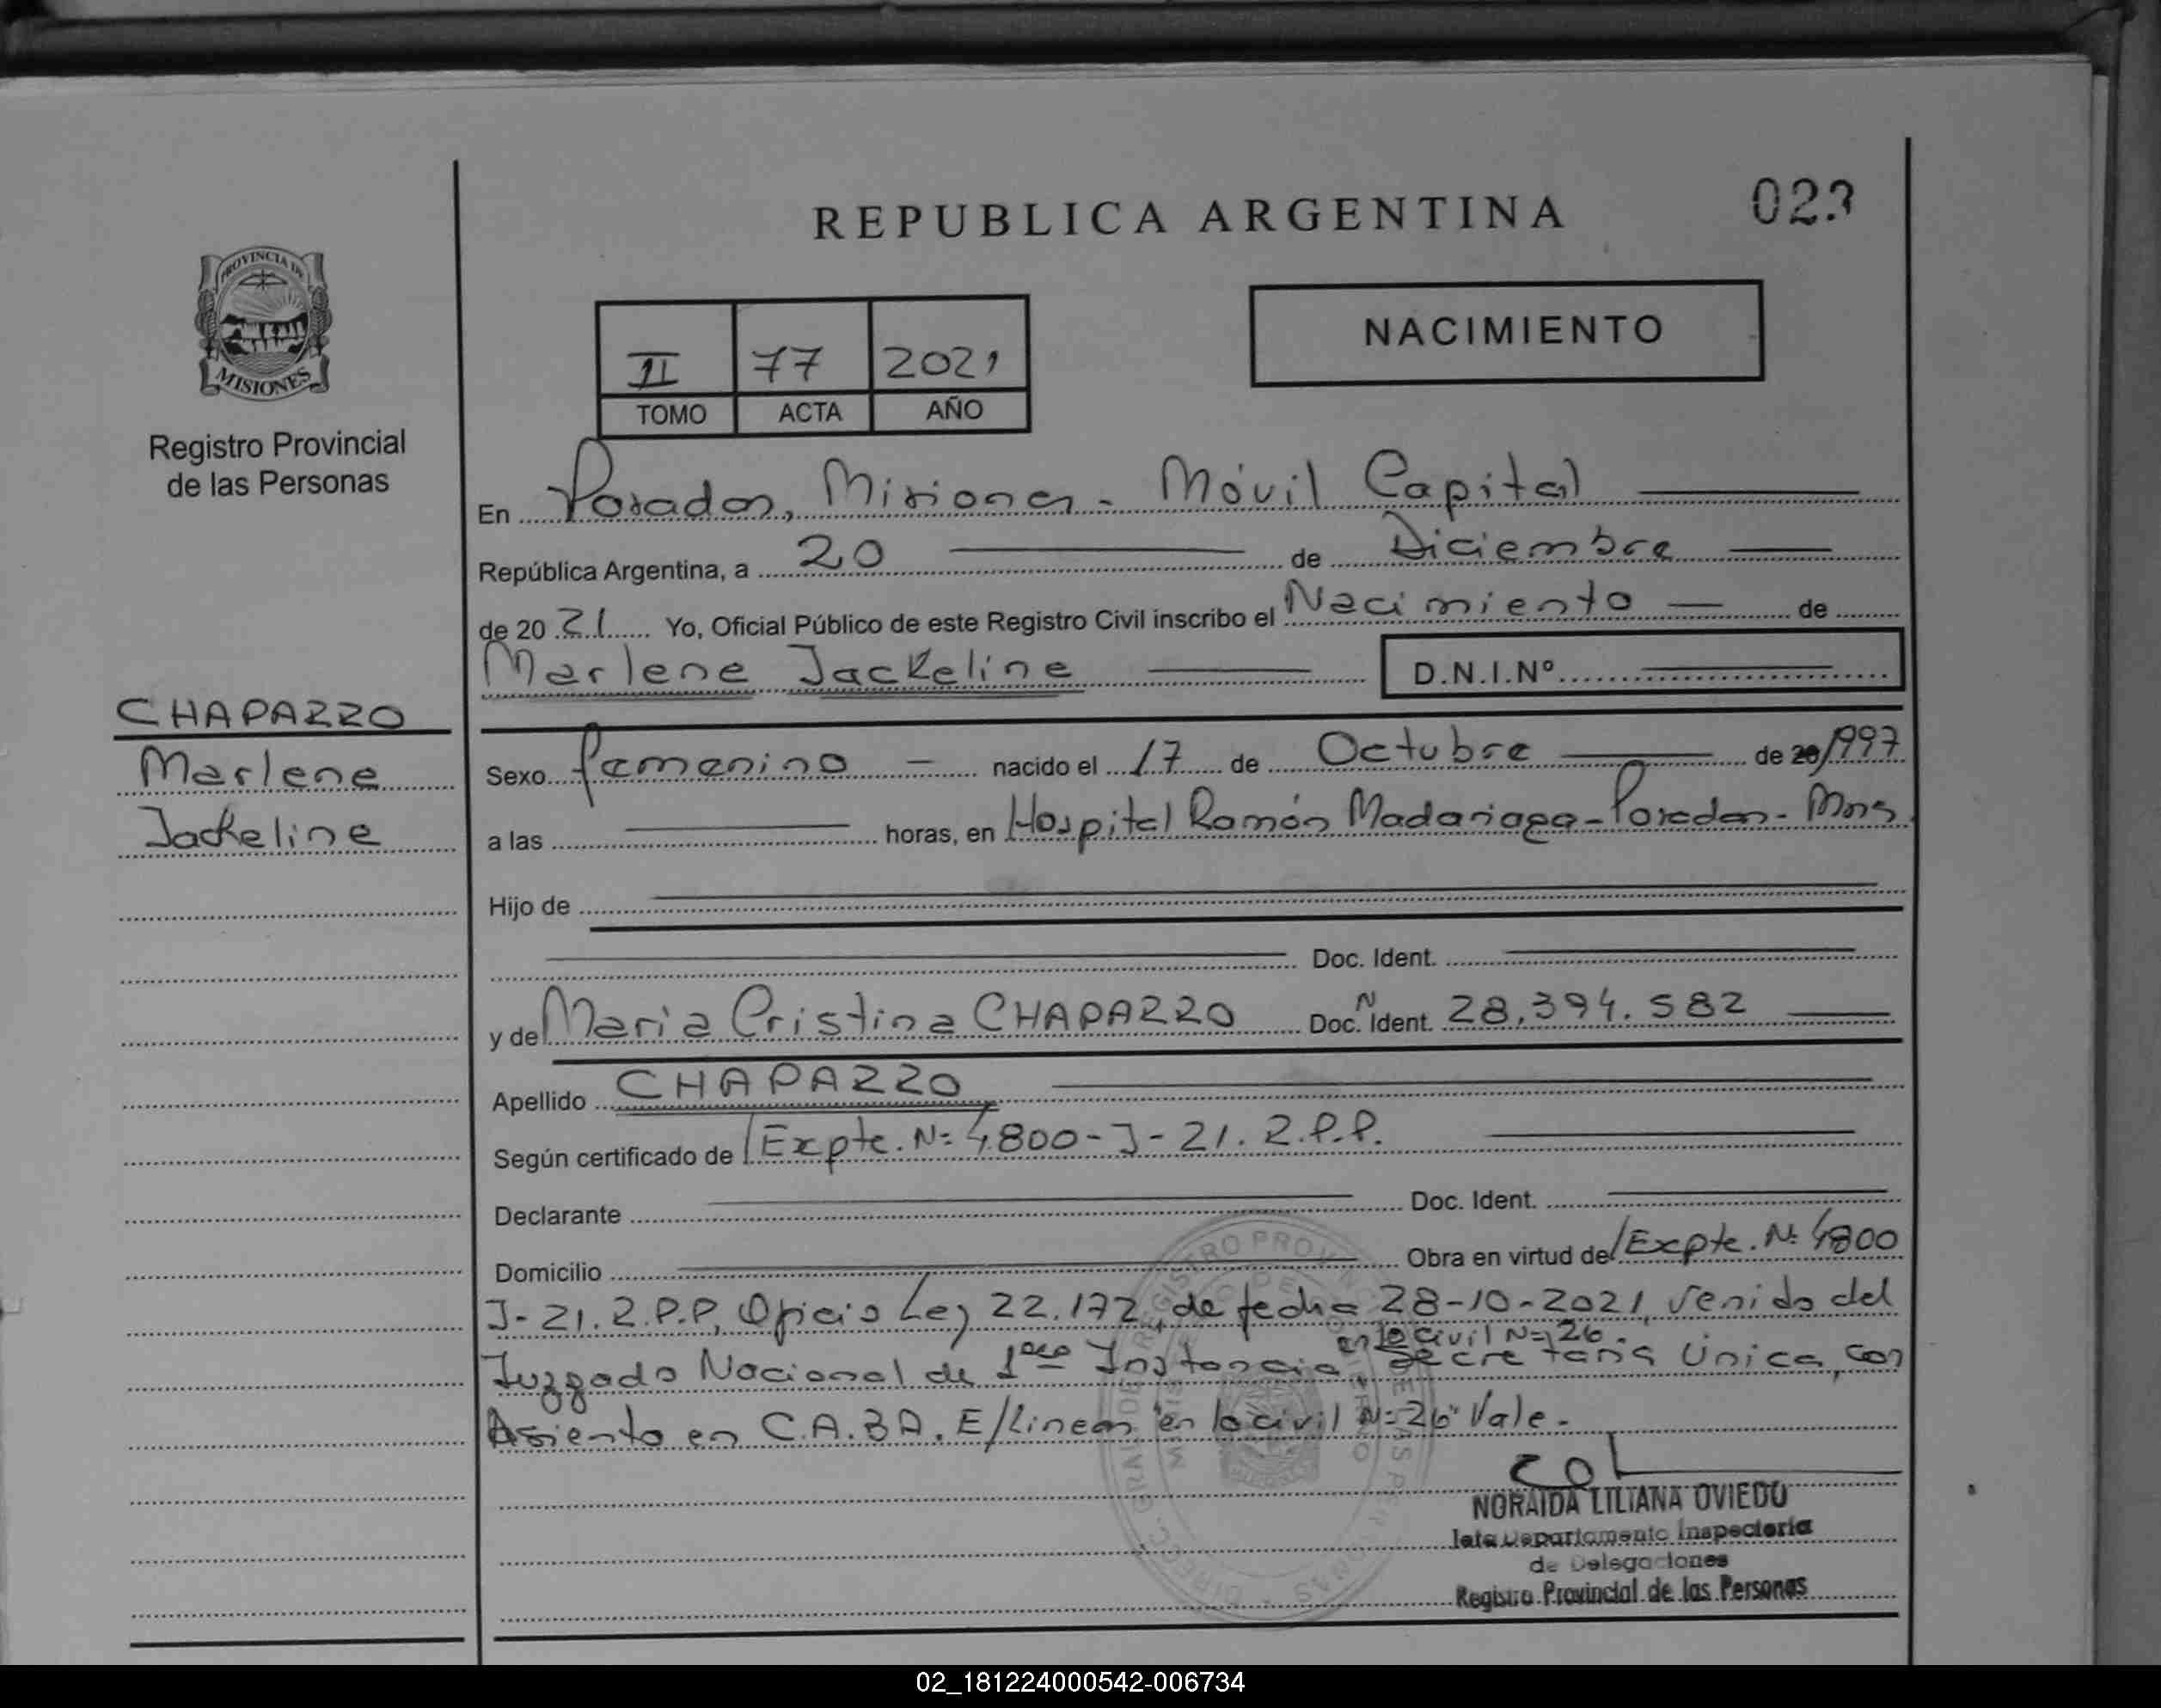 REPUBLICA ARGENTINA
023
PROVINCIA DE
MISIONES
Registro Provincial
de las Personas
II 77 2021
TOMO ACTA AÑO
NACIMIENTO
En Posadas, Misiones - Móvil Capital
República Argentina, a 20 de Diciembre
de 20 21 Yo, Oficial Público de este Registro Civil inscribo el Nacimiento de
Marlene Jackeline D.N.I.Nº
CHAPARRO
Marlene
Jackeline
Sexo femenino nacido el 17 de Octubre de 20/1997
a las horas, en Hospital Ramón Madariaga - Posadas - Mns.
Hijo de
Doc. Ident.
y de Maria Cristina CHAPARRO Doc. N Ident. 28.394.582
Apellido CHAPARRO
Según certificado de /Expte. Nº 4800-J-21. R.P.P.
Declarante Doc. Ident.
Domicilio Obra en virtud de /Expte. Nº 4800
J-21. R.P.P, Oficio Ley 22.172, de fecha 28-10-2021, venido del
en lo civil Nº 26.
Juzgado Nacional de 1era Instancia, Secretaria Única, con
Asiento en C.A.B.A. E/Lineas "en lo civil Nº 26" Vale.
NORAIDA LILIANA OVIEDO
Jefa Departamento Inspectoria
de Delegaciones
Registro Provincial de las Personas
02_181224000542-006734